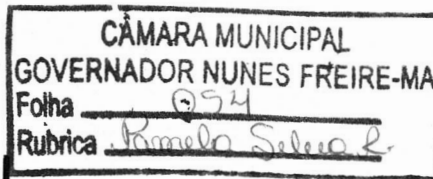 CÂMARA MUNICIPAL
GOVERNADOR NUNES FREIRE-MA
Folha 054
Rubrica Pamela Silva R.